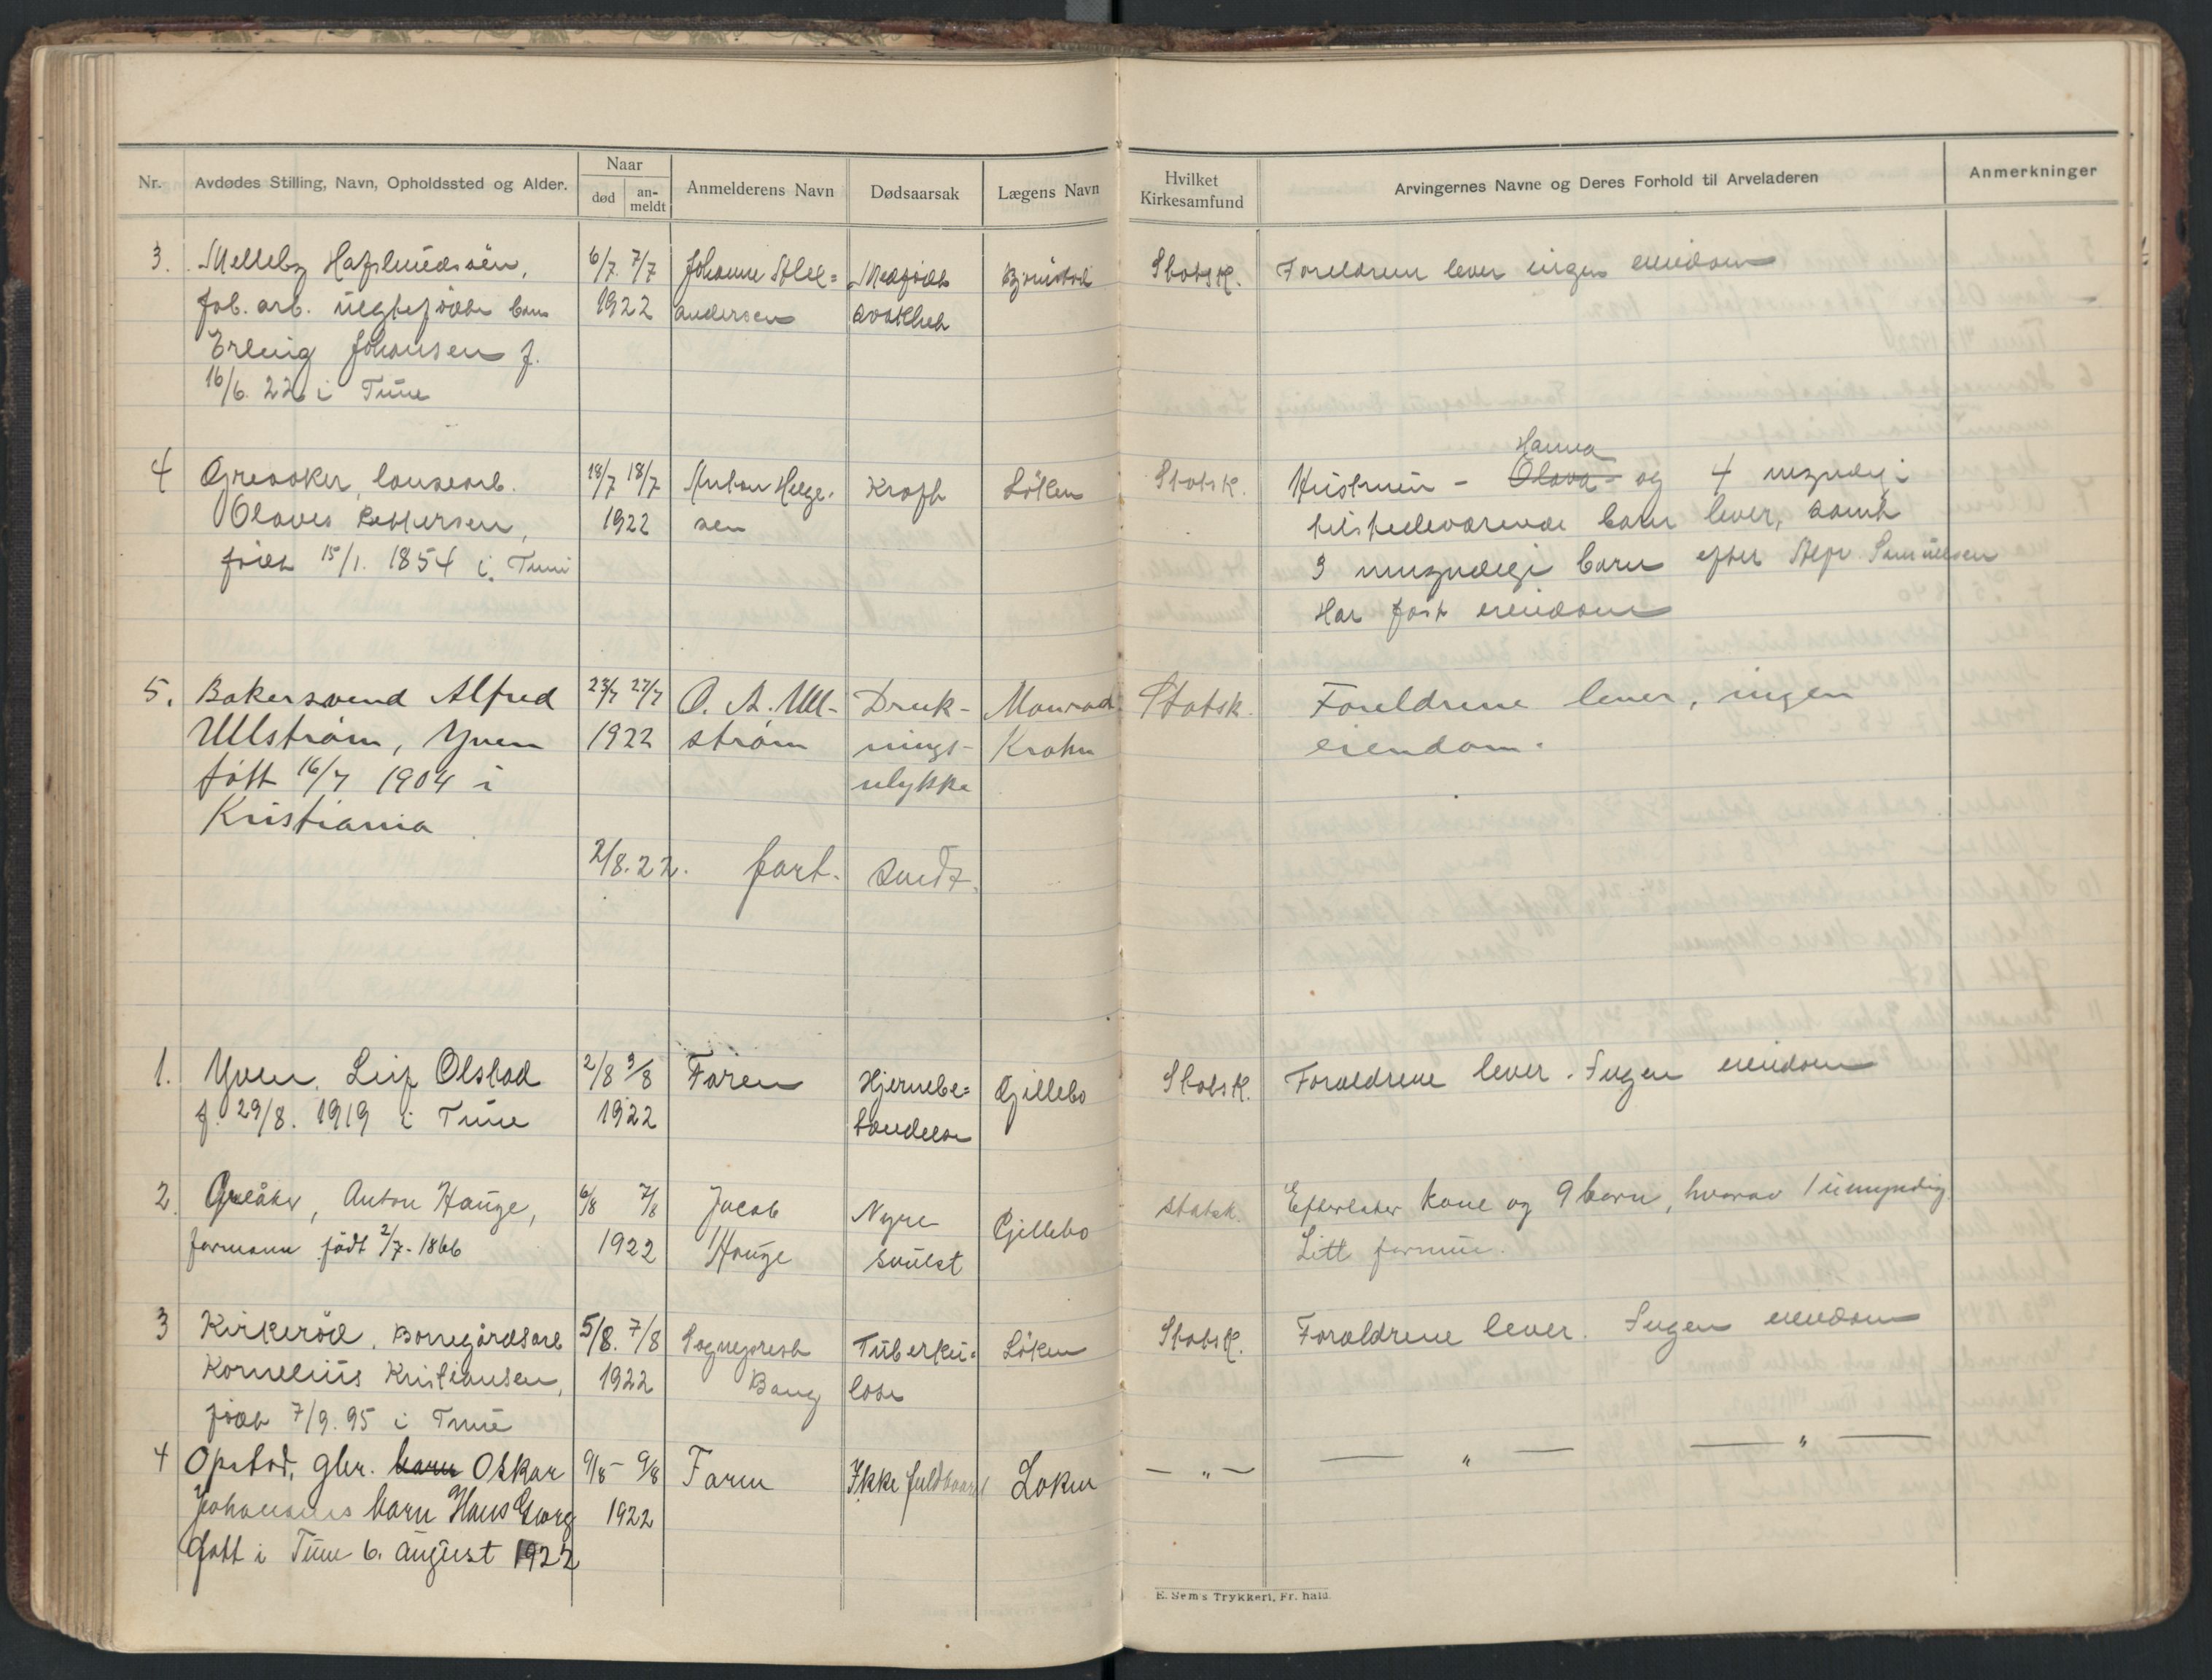 Nr.
Avdødes Stilling, Navn, Opholdssted og Alder.
Naar
død
an-
meldt
Anmelderens Navn
Dødsaarsak
Lægens Navn
Hvilket
Kirkesamfund
Arvingernes Navne og Deres Forhold til Arveladeren
Anmerkninger
3.
Melleby
fab. arb. uegtefødte barn
Erling Johansen f.
16/6. 22 i Tune
6/7. 7/7
1922
Johanne Alex=
andersen
Medfødt
svakhet
Bjørnstad
Statsk.
Foreldrene lever ingen eiendom
4
Greaaker, lansearb.
Olaves Pettersen,
født 15/1. 1854 i Tune
18/7 18/7
1922
Anton Helge-
sen
Kræft
Løken
Statsk.
Hanna
Hustruen - Olava - og 4 myndige
tilstedeværende barn lever, samt
3 umyndige barn efter
Har fast eiendom
5.
Bakersvend Alfred
Ullstrøm, Yven
født 16/7 1904 i
Kristiania
23/7 27/7
1922
O. A. Ull-
strøm
Druk-
nings-
ulykke
Monrad
Krohn
Statsk.
Foreldrene lever, ingen
eiendom.
2/8. 22. fort. sendt.
1.
Yven, Leif Olstad
f. 29/8. 1919 i Tune
2/8 3/8
1922
Faren
Hjernebe=
tændelse
Gillebo
Statsk.
Forældrene lever. Ingen eiendom
2.
Greåker, Anton Hauge,
formann født 2/7-1866
6/8 7/8
1922
Jacob
Hauge
Nyre
svulst
Gillebo
Statsk.
Efterlater kone og 9 barn, hvorav 1 umyndig.
Litt formue.
3
Kirkerød, Borregårdsarb
Kornelius Kristiansen,
født 7/9. 95 i Tune
5/8. 7/8
1922
Sogneprest
Bang
Tuberku=
lose
Løken
Statsk.
Forældrene lever. Ingen eiendom
4
Opstad, gbr. barn Oskar
Johansens barn Hans Georg
født i Tune 6. august 1922
9/8 - 9/8
1922
Faren
Ikke fuldbaaret
Løken
— „ —
— „ — — „ —
E. Sem's Trykkeri, Fr. hald.